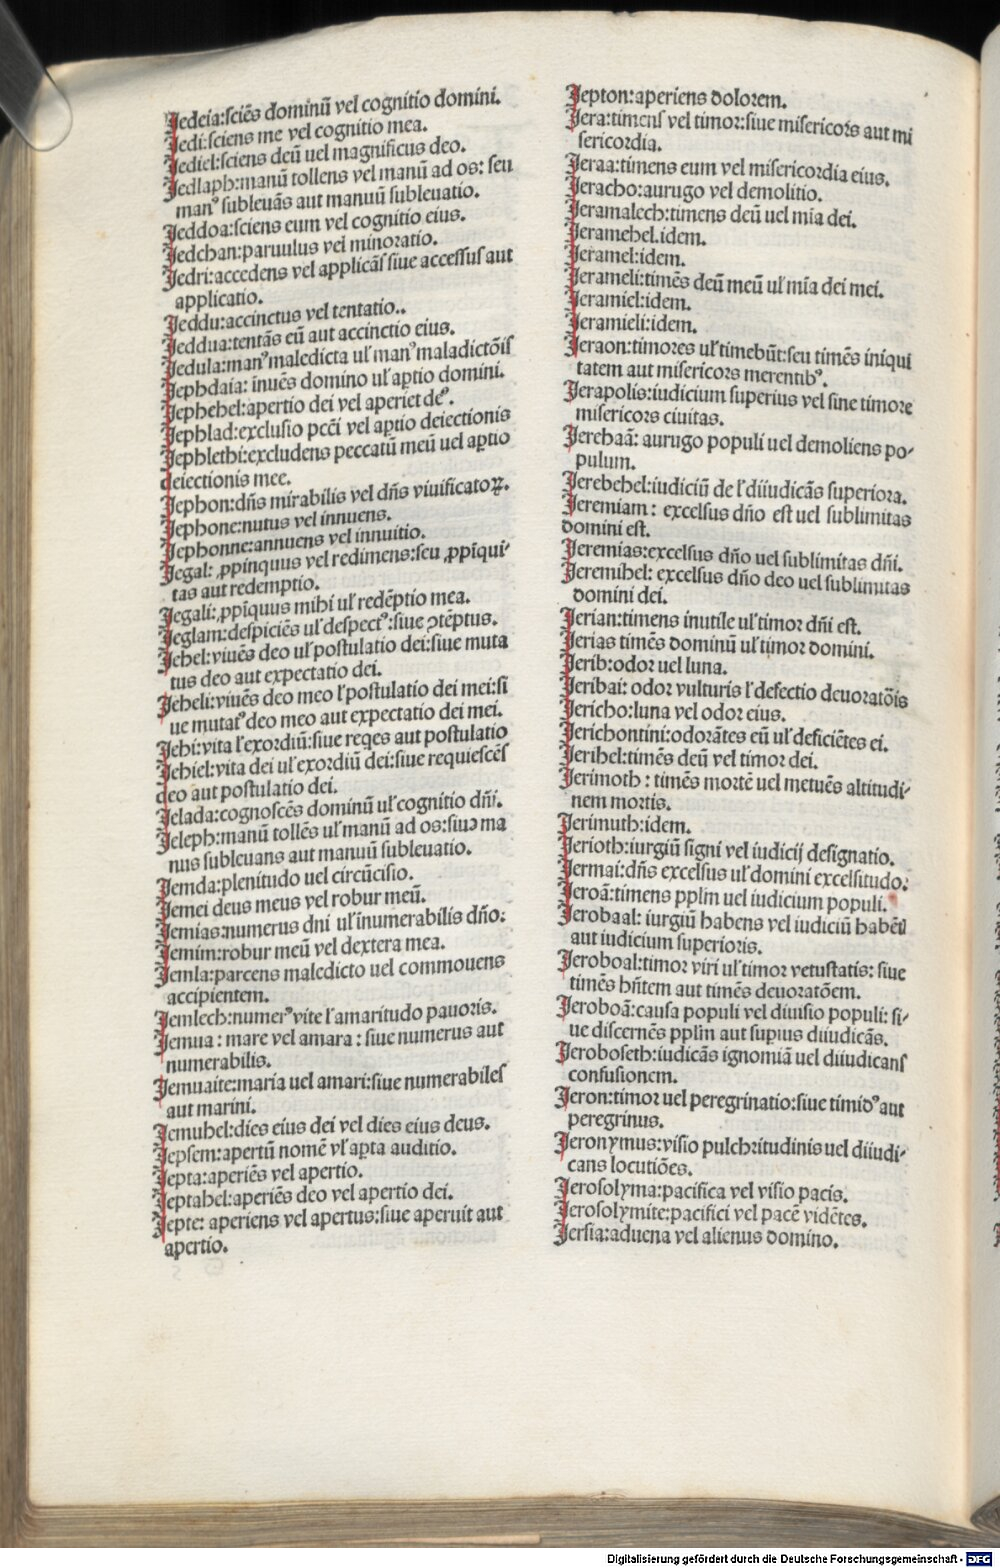 Jedeia:sciēs dominū vel cognitio domini.
Jedi:sciens me vel cognitio mea.
Jediel:sciens deū uel magnificus deo.
Jedlaph:manū tollens vel manū ad os: seu
manꝰ subleuās aut manuū subleuatio.
Jeddoa:sciens eum vel cognitio eius.
Jedchan:paruulus vel minoratio.
Jedri:accedens vel applicās siue accessus aut
applicatio.
Jeddu:accinctus vel tentatio..
Jeddua:tentās eū aut accinctio eius.
Jedula:manꝰ maledicta uł manꝰ maladictōis
Jephdaia: inuēs domino uł aꝑtio domini.
Jephehel:apertio dei vel aperiet deꝰ.
Jephlad:exclusio pcc̄i vel aꝑtio deiectionis
Jephlethi:excludens peccatū meū uel aꝑtio
deiectionis mee.
Jephon:dn̄s mirabilis vel dn̄s viuificatoꝝ.
Jephone:nutus vel innuens.
Jephonne:annuens vel innuitio.
Jegal: ꝓpinquus vel redimens:seu ꝓpīqui-
tas aut redemptio.
Jegali:ꝓpīquus mihi uł redēptio mea.
Jeglam:despiciēs uł despectꝰ:siue ꝯtēptus.
Jehel:viuēs deo uł postulatio dei:siue muta
tus deo aut expectatio dei.
Jeheli:viuēs deo meo ł postulatio dei mei:si
ue mutatꝰ deo meo aut expectatio dei mei.
Jehi:vita ł exordiū:siue reqes aut postulatio
Jehiel:vita dei uł exordiū dei:siue requiescēs
deo aut postulatio dei.
Jelada:cognoscēs dominū uł cognitio dn̄i.
Jeleph:manū tollēs uł manū ad os:siuɔ ma
nus subleuans aut manuū subleuatio.
Jemda:plenitudo uel circūcisio.
Jemei deus meus vel robur meū.
Jemias:numerus dni uł inumerabilis dn̄o:
Jemim:robur meū vel dextera mea.
Jemla:parcens maledicto uel commouens
accipientem.
Jemlech:numerꝰ vite ł amaritudo pauoris.
Jemua : mare vel amara : siue numerus aut
numerabilis.
Jemuaite:maria uel amari:siue numerabiles
aut marini.
Jemuhel:dies eius dei vel dies eius deus.
Jepsem:apertū nomē vł aꝑta auditio.
Jepta:aperiēs vel apertio.
Jeptahel:aperiēs deo vel apertio dei.
Jepte: aperiens vel apertus:siue aperuit aut
apertio.
Jepton:aperiens dolorem.
Jera:timens vel timor:siue misericors aut mi
sericordia.
Jeraa:timens eum vel misericordia eius.
Jeracho:aurugo vel demolitio.
Jeramalech:timens deū uel mīa dei.
Jeramehel.idem.
Jeramel:idem.
Jerameli:timēs deū meū uł mīa dei mei.
Jeramiel:idem.
Jeramieli:idem.
Jeraon:timores uł timebūt:seu timēs iniqui
tatem aut misericors merentibꝰ.
Jerapolis:iudicium superius vel sine timore
misericors ciuitas.
Jerebaā: aurugo populi uel demoliens po-
pulum.
Jerebehel:iudiciū de ł diiudicās superiora.
Jeremiam : excelsus dn̄o est uel sublimitas
domini est.
Jeremias:excelsus dn̄o uel sublimitas dn̄i.
Jeremihel: excelsus dn̄o deo uel sublimitas
domini dei.
Jerian:timens inutile uł timor dn̄i est.
Jerias timēs dominū uł timor domini.
Jerib:odor uel luna.
Jeribai: odor vulturis ł defectio deuoratōis
Jericho:luna vel odor eius.
Jerichontini:odorātes eū uł deficiētes ei.
Jerihel:timēs deū vel timor dei.
Jerimoth : timēs mortē uel metuēs altitudi-
nem mortis.
Jerimuth:idem.
Jerioth:iurgiū signi vel iudicij designatio.
Jermai:dn̄s excelsus uł domini excelsitudo:
Jeroā:timens pplm uel iudicium populi.
Jerobaal: iurgiū habens vel iudiciū habēs
aut iudicium superioris.
Jeroboal:timor viri uł timor vetustatis: siue
timēs hn̄tem aut timēs deuoratōem.
Jeroboā:causa populi vel diuisio populi: si-
ue discernēs pplm aut supius diiudicās.
Jeroboseth:iudicās ignomiā uel diiudicans
confusionem.
Jeron:timor uel peregrinatio:siue timidꝰ aut
peregrinus.
Jeronymus:visio pulchritudinis uel diiudi-
cans locutiōes.
Jerosolyma:pacifica vel visio pacis.
Jerosolymite:pacifici vel pacē vidētes.
Jersia:aduena vel alienus domino.
Digitalisierung gefördert durch die Deutsche Forschungsgemeinschaft - DFG